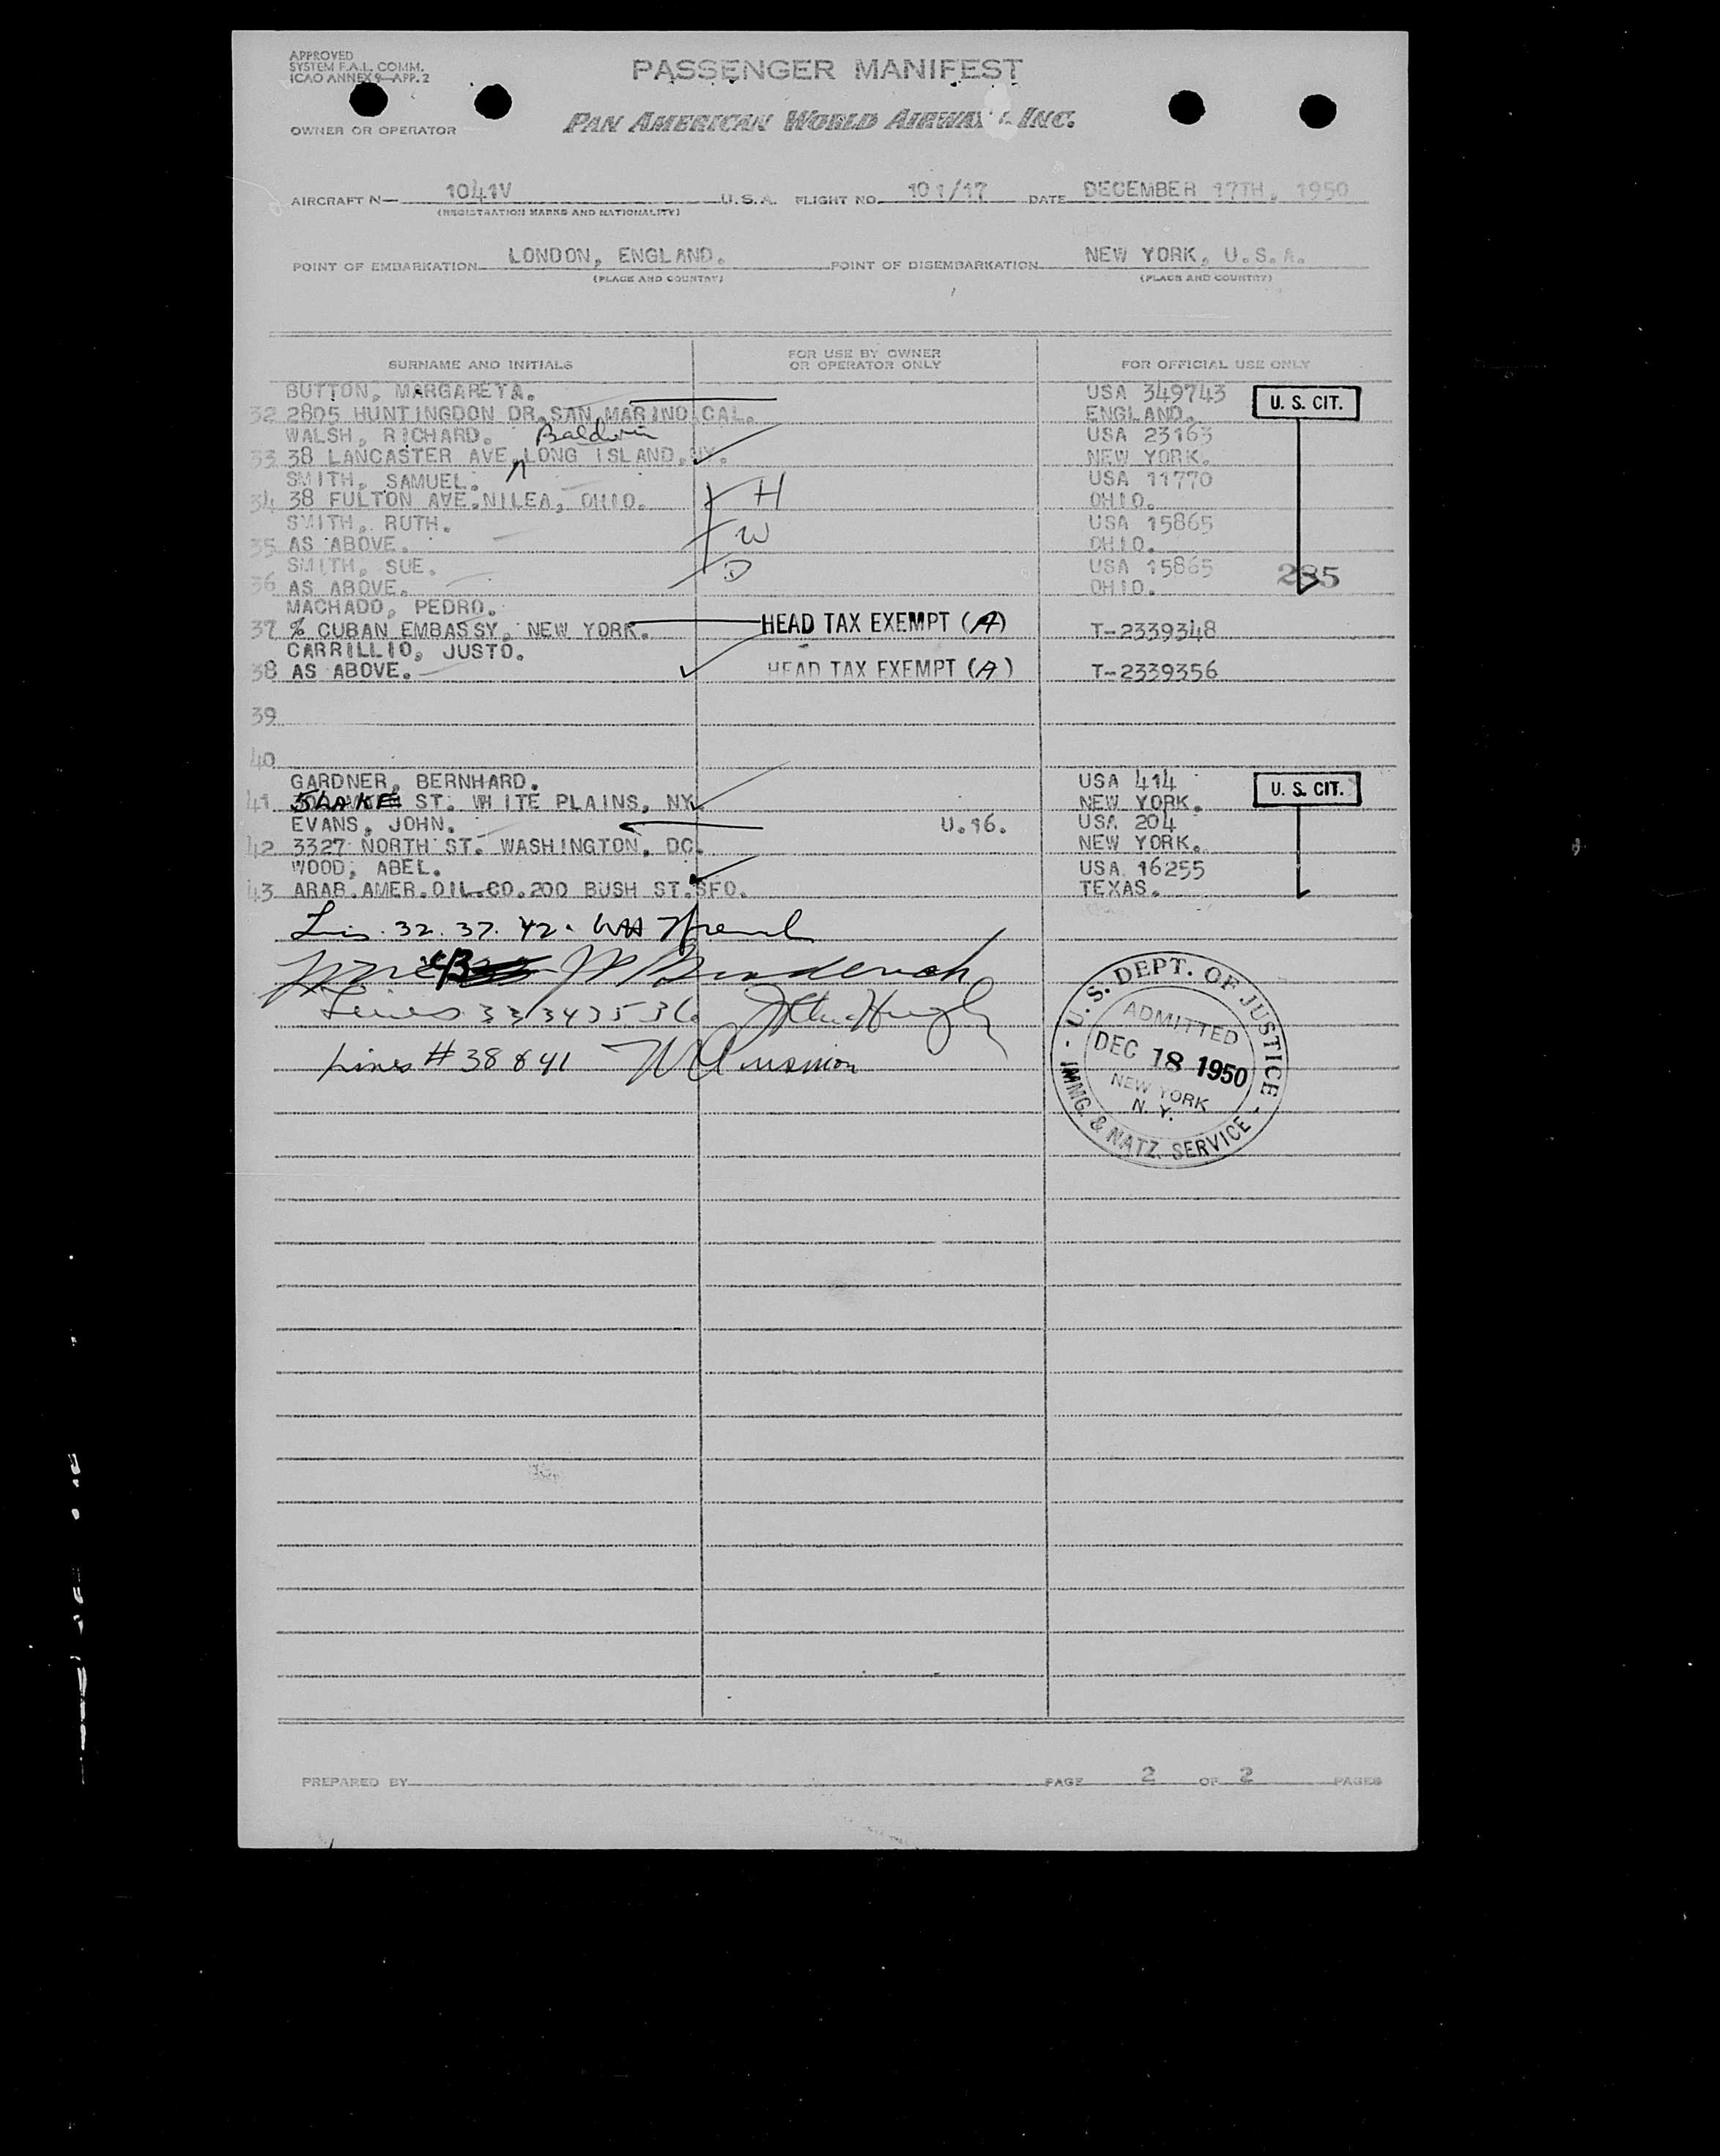 APPROVED
SYSTEM F.A.L. COMM.
ICAO ANNEX 9—APP. 2
PASSENGER MANIFEST
OWNER OR OPERATOR
PAN AMERICAN WORLD AIRWAYS INC.
AIRCRAFT N— 1041V U.S.A. FLIGHT NO. 101/17 DATE DECEMBER 17TH, 1950
(REGISTRATION MARKS AND NATIONALITY)
POINT OF EMBARKATION LONDON, ENGLAND. POINT OF DISEMBARKATION NEW YORK, U.S.A.
(PLACE AND COUNTRY) (PLACE AND COUNTRY)
SURNAME AND INITIALS FOR USE BY OWNER OR OPERATOR ONLY FOR OFFICIAL USE ONLY
BUTTON, MARGARETA. USA 349743
32 2805 HUNTINGDON DR.SAN MARINO,CAL. ENGLAND. U. S. CIT.
WALSH, RICHARD. Baldwin USA 23163
33 38 LANCASTER AVE,LONG ISLAND,NY. NEW YORK.
SMITH, SAMUEL. USA 11770
34 38 FULTON AVE.NILEA, OHIO. H OHIO.
SMITH, RUTH. USA 15865
35 AS ABOVE. W OHIO.
SMITH, SUE. USA 15865
36 AS ABOVE. D OHIO. 285
MACHADO, PEDRO.
37 % CUBAN EMBASSY, NEW YORK. HEAD TAX EXEMPT (A) T-2339348
CARRILLIO, JUSTO.
38 AS ABOVE. HEAD TAX EXEMPT (A) T-2339356
39
40
GARDNER, BERNHARD. USA 414
41 5LAKE ST. WHITE PLAINS, NY. NEW YORK. U. S. CIT.
EVANS, JOHN. U.16. USA 204
42 3327 NORTH ST. WASHINGTON, DC. NEW YORK.
WOOD, ABEL. USA 16255
43 ARAB.AMER.OIL.CO.200 BUSH ST.SFO. TEXAS.
32. 37. 42.
43
Lines 33 34 35 36
Lines # 38 & 41
U. S. DEPT. OF JUSTICE
ADMITTED
DEC 18 1950
NEW YORK
N. Y.
IMMG. & NATZ. SERVICE
PREPARED BY PAGE 2 OF 2 PAGES